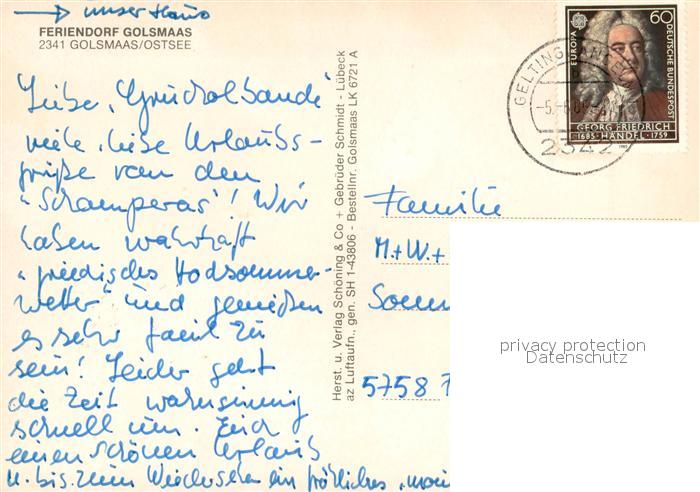 → unser Haus
FERIENDORF GOLSMAAS
2341 GOLSMAAS/OSTSEE
Liebe "
viele liebe Urlaubs-
grüße von den
"Schamperas"! Wir
haben wahrhaft
"griechisches Hochsommer-
wetter" und genießen
es sehr faul zu
sein! Leider geht
die Zeit wahnsinnig
schnell um. Euch
einen schönen Urlaub
u. bis zum Wiedersehen ein fröhliches "moi
Herst. u. Verlag Schöning & Co + Gebrüder Schmidt - Lübeck
az Luftaufn., gen. SH 1-43806 - Bestellnr. Golsmaas LK 6721 A
EUROPA
60
DEUTSCHE BUNDESPOST
GEORG FRIEDRICH
1685 · HÄNDEL · 1759
1985
GELTING
2342
Familie
M.+W.+
5758
privacy protection
Datenschutz